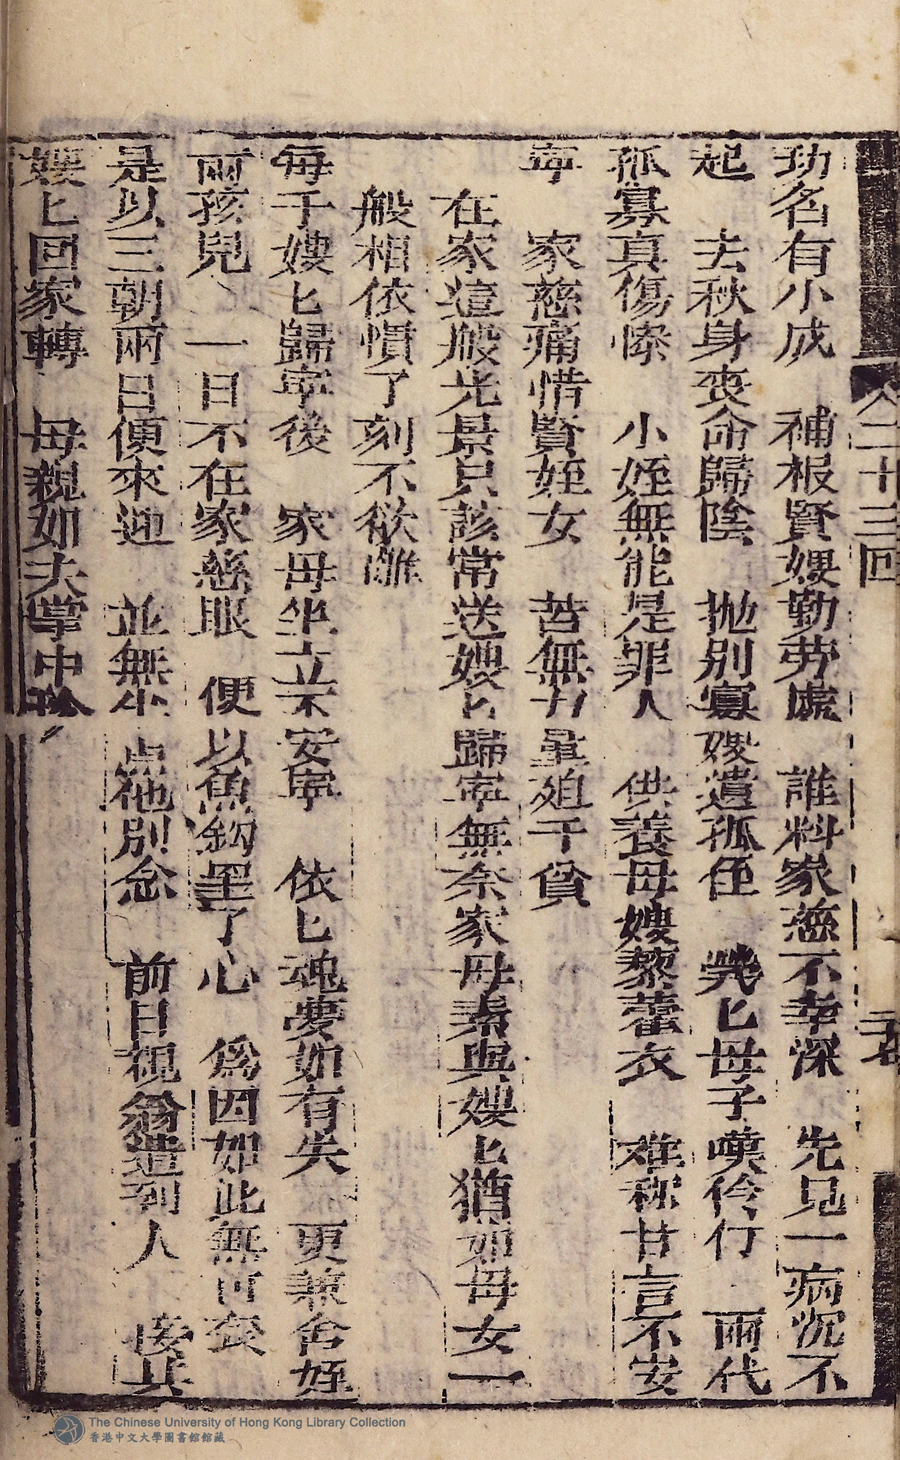 二十三回
功名有小成　補報賢嫂勤勞處　誰料家慈不幸深　先兄一病沉不
起　去秋身喪命歸陰　拋別寡嫂遺孤侄　煢匕母子嘆伶仃　兩代
孤寡真傷慘　小姪無能是罪人　供養母嫂藜藿衣　难称甘言不安
寕　家慈痛惜賢姪女　苦無力量
在家這般光景只該常送嫂匕歸寕無奈家母素與嫂匕猶如母女一
般相依慣了刻不欲離
每千嫂匕歸寕後　家母坐立不安寕　依匕魂夢如有失　更兼舍姪
兩孩兒　一日不在家慈眼　便以魚鈎墨了心　爲因如此無可奈
是以三朝兩日便來迎　並無生他別念　前日親翁遣到人　接共
嫂匕回家轉　母親如失掌中珍
The Chinese University of Hong Kong Library Collection
香港中文大學圖書館館藏